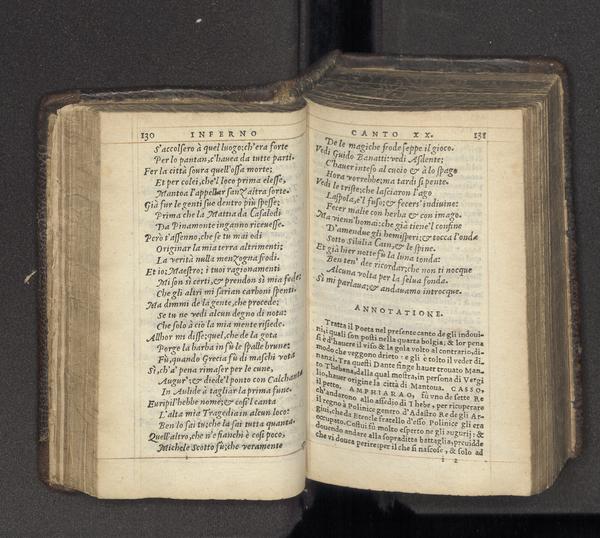 130 INFERNO
S'accolsero à quel luogo: ch'era forte
Per lo pantan, c'hauea da tutte parti.
Fer la città soura quell'ossa morte;
Et per colei, che'l loco prima elesse,
Mantoa l'appellar sanz'altra sorte.
Già fur le genti sue dentro più spesse;
Prima che la Mattia da Casalodi
Da Pinamonte inganno riceuesse.
Però t'assenno, che se tu mai odi
Originar la mia terra altrimenti;
La verità nulla menzogna frodi.
Et io; Maestro; i tuoi ragionamenti
Mi son sì certi, & prendon sì mia fede;
Che gli altri mi sarian carboni spenti.
Ma dimmi de la gente, che procede;
Se tu ne vedi alcun degno di nota:
Che solo à ciò la mia mente risiede.
Allhor mi disse; quel, che de la gota
Porge la barba in sù le spalle brune;
Fù, quando Grecia fù di maschi vota
Sì, ch'a' pena rimaser per le cune,
Augur'; & diede'l ponto con Calchanta
In Aulide à tagliar la prima fune.
Euripil'hebbe nome; & così'l canta
L'alta mia Tragedia in alcun loco:
Ben lo sai tu; che la sai tutta quanta.
Quell'altro, che n'e fianchi è così poco,
Michele Scotto fù; che veramente
CANTO XX. 131
De le magiche frode seppe il gioco.
Vedi Guido Banatti: vedi Asdente;
C'hauer inteso al cucio & à lo spago
Hora vorrebbe; ma tardi si pente.
Vedi le triste; che lasciaron l'ago
La spola, e'l fuso; & fecers' indiuine:
Fecer malie con herba & con imago.
Ma vienn'homai: che già tiene'l confine
D'amendue gli hemisperi; & tocca l'onda
Sotto Sibilia Cain, & le spine.
Et già hier notte fù la luna tonda:
Ben ten' dee ricordar; che non ti nocque
Alcuna volta per la selua fonda.
Sì mi parlaua; & andauamo introcque.
ANNOTATIONE.
Tratta il Poeta nel presente canto de gli indoui-
ni, i quali son posti nella quarta bolgia; & lor pena
si è d'hauere il viso & la gola volto al contrario, di-
modo che veggono drieto: e gli è tolto il veder di-
nanzi. Tra questi Dante finge hauer trouato Man-
to Thebana, della qual mostra, in persona di Vergi
lio, hauer origine la città di Mantoua. CASSO,
il petto. AMPHIARAO, fù vno de sette Re
ch'andarono allo assedio di Thebe, per ricuperare
il regno à Polinice genero d'Adastro Re de gli Ar-
giui, che da Etrocle fratello d'esso Polinice gli era
occupato. Costui fù molto esperto ne gli augurij: &
douendo andare alla sopraditta battaglia, preuidde
che vi douca perire: per il che si nascose, & solo ad
I 2